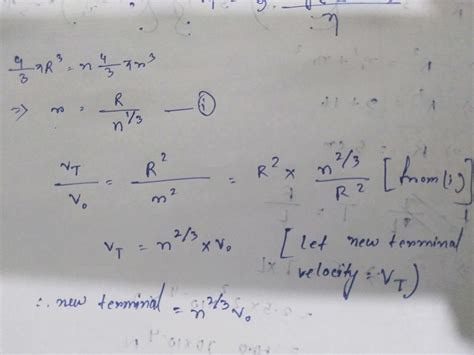 4/3 πR³ = n 4/3 πr³
⇒ r = R / n^1/3 — (i)
v_T / v_0 = R² / r² = R² × n^2/3 / R² [from (i)]
v_T = n^2/3 × v_0 [let new terminal
velocity = v_T)
∴ new terminal = n^2/3 v_0